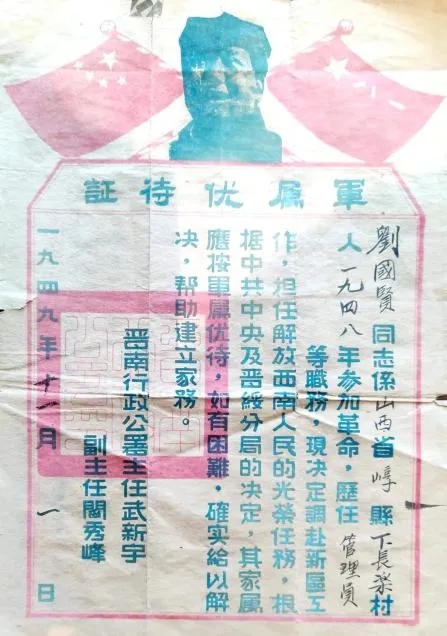 軍属优待証
劉國賢同志係山西省崞縣下長樂村
人一九四八年参加革命，歷任管理員
等職務，現决定調赴新區工
作，担任解放西南人民的光荣任務，根
据中共中央及晋綏分局的决定，其家属
應按軍属优待，如有困難，確实給以解
决，帮助建立家務。
晋南行政公署主任武新宇
副主任閻秀峰
一九四九年十一月一日